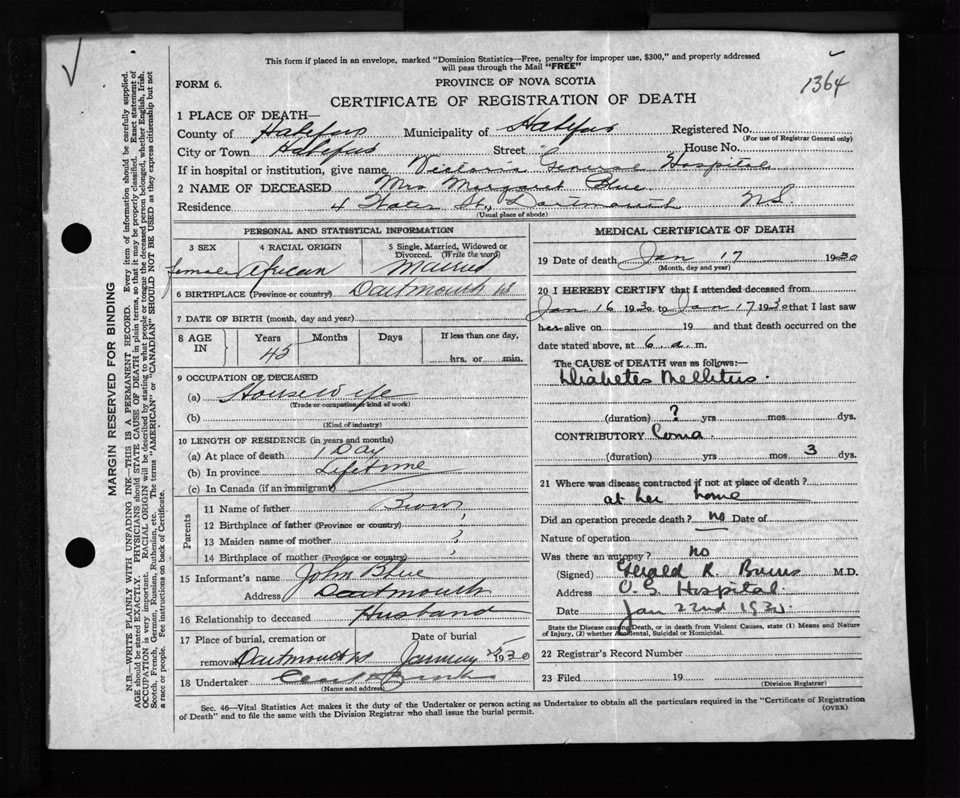 This form if placed in an envelope, marked "Dominion Statistics—Free, penalty for improper use, $300," and properly addressed
will pass through the Mail "FREE"
FORM 6.
PROVINCE OF NOVA SCOTIA
1364
CERTIFICATE OF REGISTRATION OF DEATH
1 PLACE OF DEATH—
County of Halifax Municipality of Halifax Registered No.
(For use of Registrar General only)
City or Town Halifax Street House No.
If in hospital or institution, give name Victoria General Hospital
2 NAME OF DECEASED Mrs Margaret Blue
Residence 4 Water St, Dartmouth N.S.
(Usual place of abode)
PERSONAL AND STATISTICAL INFORMATION
3 SEX 4 RACIAL ORIGIN 5 Single, Married, Widowed or Divorced. (Write the word)
female African Married
6 BIRTHPLACE (Province or country) Dartmouth NS
7 DATE OF BIRTH (month, day and year)
8 AGE IN Years Months Days If less than one day,
45 hrs. or min.
9 OCCUPATION OF DECEASED
(a) Housewife
(Trade or occupation or kind of work)
(b)
(Kind of industry)
10 LENGTH OF RESIDENCE (in years and months)
(a) At place of death 1 Day
(b) In province Lifetime
(c) In Canada (if an immigrant)
Parents
11 Name of father
12 Birthplace of father (Province or country) ?
13 Maiden name of mother ?
14 Birthplace of mother (Province or country) ?
15 Informant's name John Blue
Address Dartmouth
16 Relationship to deceased Husband
17 Place of burial, cremation or Date of burial
removal Dartmouth NS January 1930
18 Undertaker
(Name and address)
MEDICAL CERTIFICATE OF DEATH
19 Date of death Jan 17 1930
(Month, day and year)
20 I HEREBY CERTIFY that I attended deceased from
Jan 16 1930 to Jan 17 1930 that I last saw
her alive on 19 and that death occurred on the
date stated above, at 6 a.m.
The CAUSE OF DEATH was as follows:—
Diabetes Mellitus.
(duration) ? yrs mos dys.
CONTRIBUTORY Coma
(duration) yrs mos 3 dys.
21 Where was disease contracted if not at place of death?
at her home
Did an operation precede death? no Date of
Nature of operation
Was there an autopsy? no
(Signed) Gerald R. Burns M.D.
Address V.G. Hospital.
Date Jan 22nd 1930.
State the Disease causing Death, or in death from Violent Causes, state (1) Means and Nature
of Injury, (2) whether Accidental, Suicidal or Homicidal.
22 Registrar's Record Number
23 Filed 19
(Division Registrar)
Sec. 46—Vital Statistics Act makes it the duty of the Undertaker or person acting as Undertaker to obtain all the particulars required in the "Certificate of Registration
of Death" and to file the same with the Division Registrar who shall issue the burial permit.
(OVER)
MARGIN RESERVED FOR BINDING
N.B.—WRITE PLAINLY WITH UNFADING INK—THIS IS A PERMANENT RECORD. Every item of information should be carefully supplied.
AGE should be stated EXACTLY. PHYSICIANS should STATE CAUSE OF DEATH in plain terms, so that it may be properly classified. Exact statement of
OCCUPATION is very important. RACIAL ORIGIN will be described by stating to what people or tongue the deceased person belonged, whether English, Irish,
Scotch, French, German, Russian, Ruthenian, etc. The terms "AMERICAN" or "CANADIAN" SHOULD NOT BE USED as they express citizenship but not
a race or people. Fee instructions on back of Certificate.